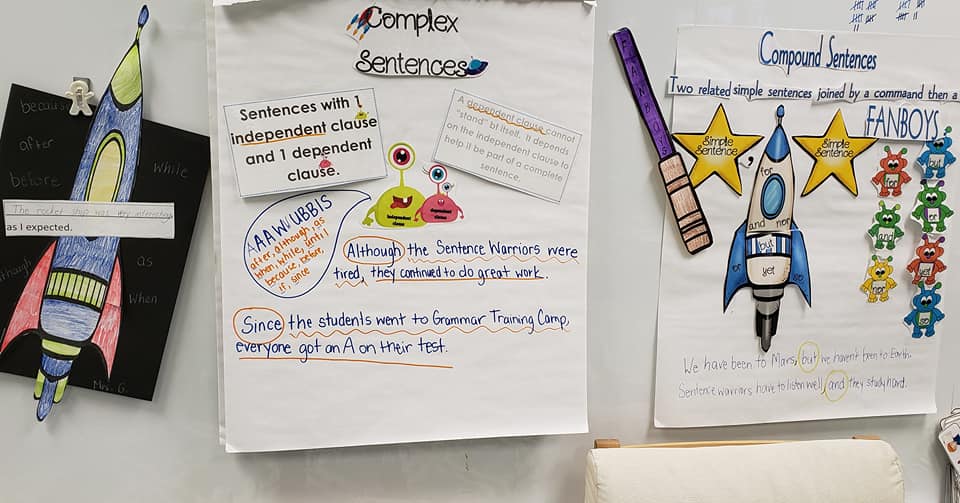 because
after
before
While
The rocket ship was very interesting
as I expected.
although
as
When
Mrs. G.
Complex
Sentences
Sentences with 1
independent clause
and 1 dependent
clause.
A dependent clause cannot
"stand" bt itself. It depends
on the independent clause to
help it be part of a complete
sentence.
independent
clause
dependent
clause
AAAWWUBBIS
after, although, as
when, while, until
because, before,
if, since
Although the Sentence Warriors were
tired, they continued to do great work.
Since the students went to Grammar Training Camp,
everyone got an A on their test.
FANBOYS
Compound Sentences
Two related simple sentences joined by a command then a
FANBOYS
Simple
Sentence
,
Simple
Sentence
for
and nor
but
or yet so
for
but
and
or
nor
yet
so
We have been to Mars, but we haven't been to Earth.
Sentence warriors have to listen well, and they study hard.